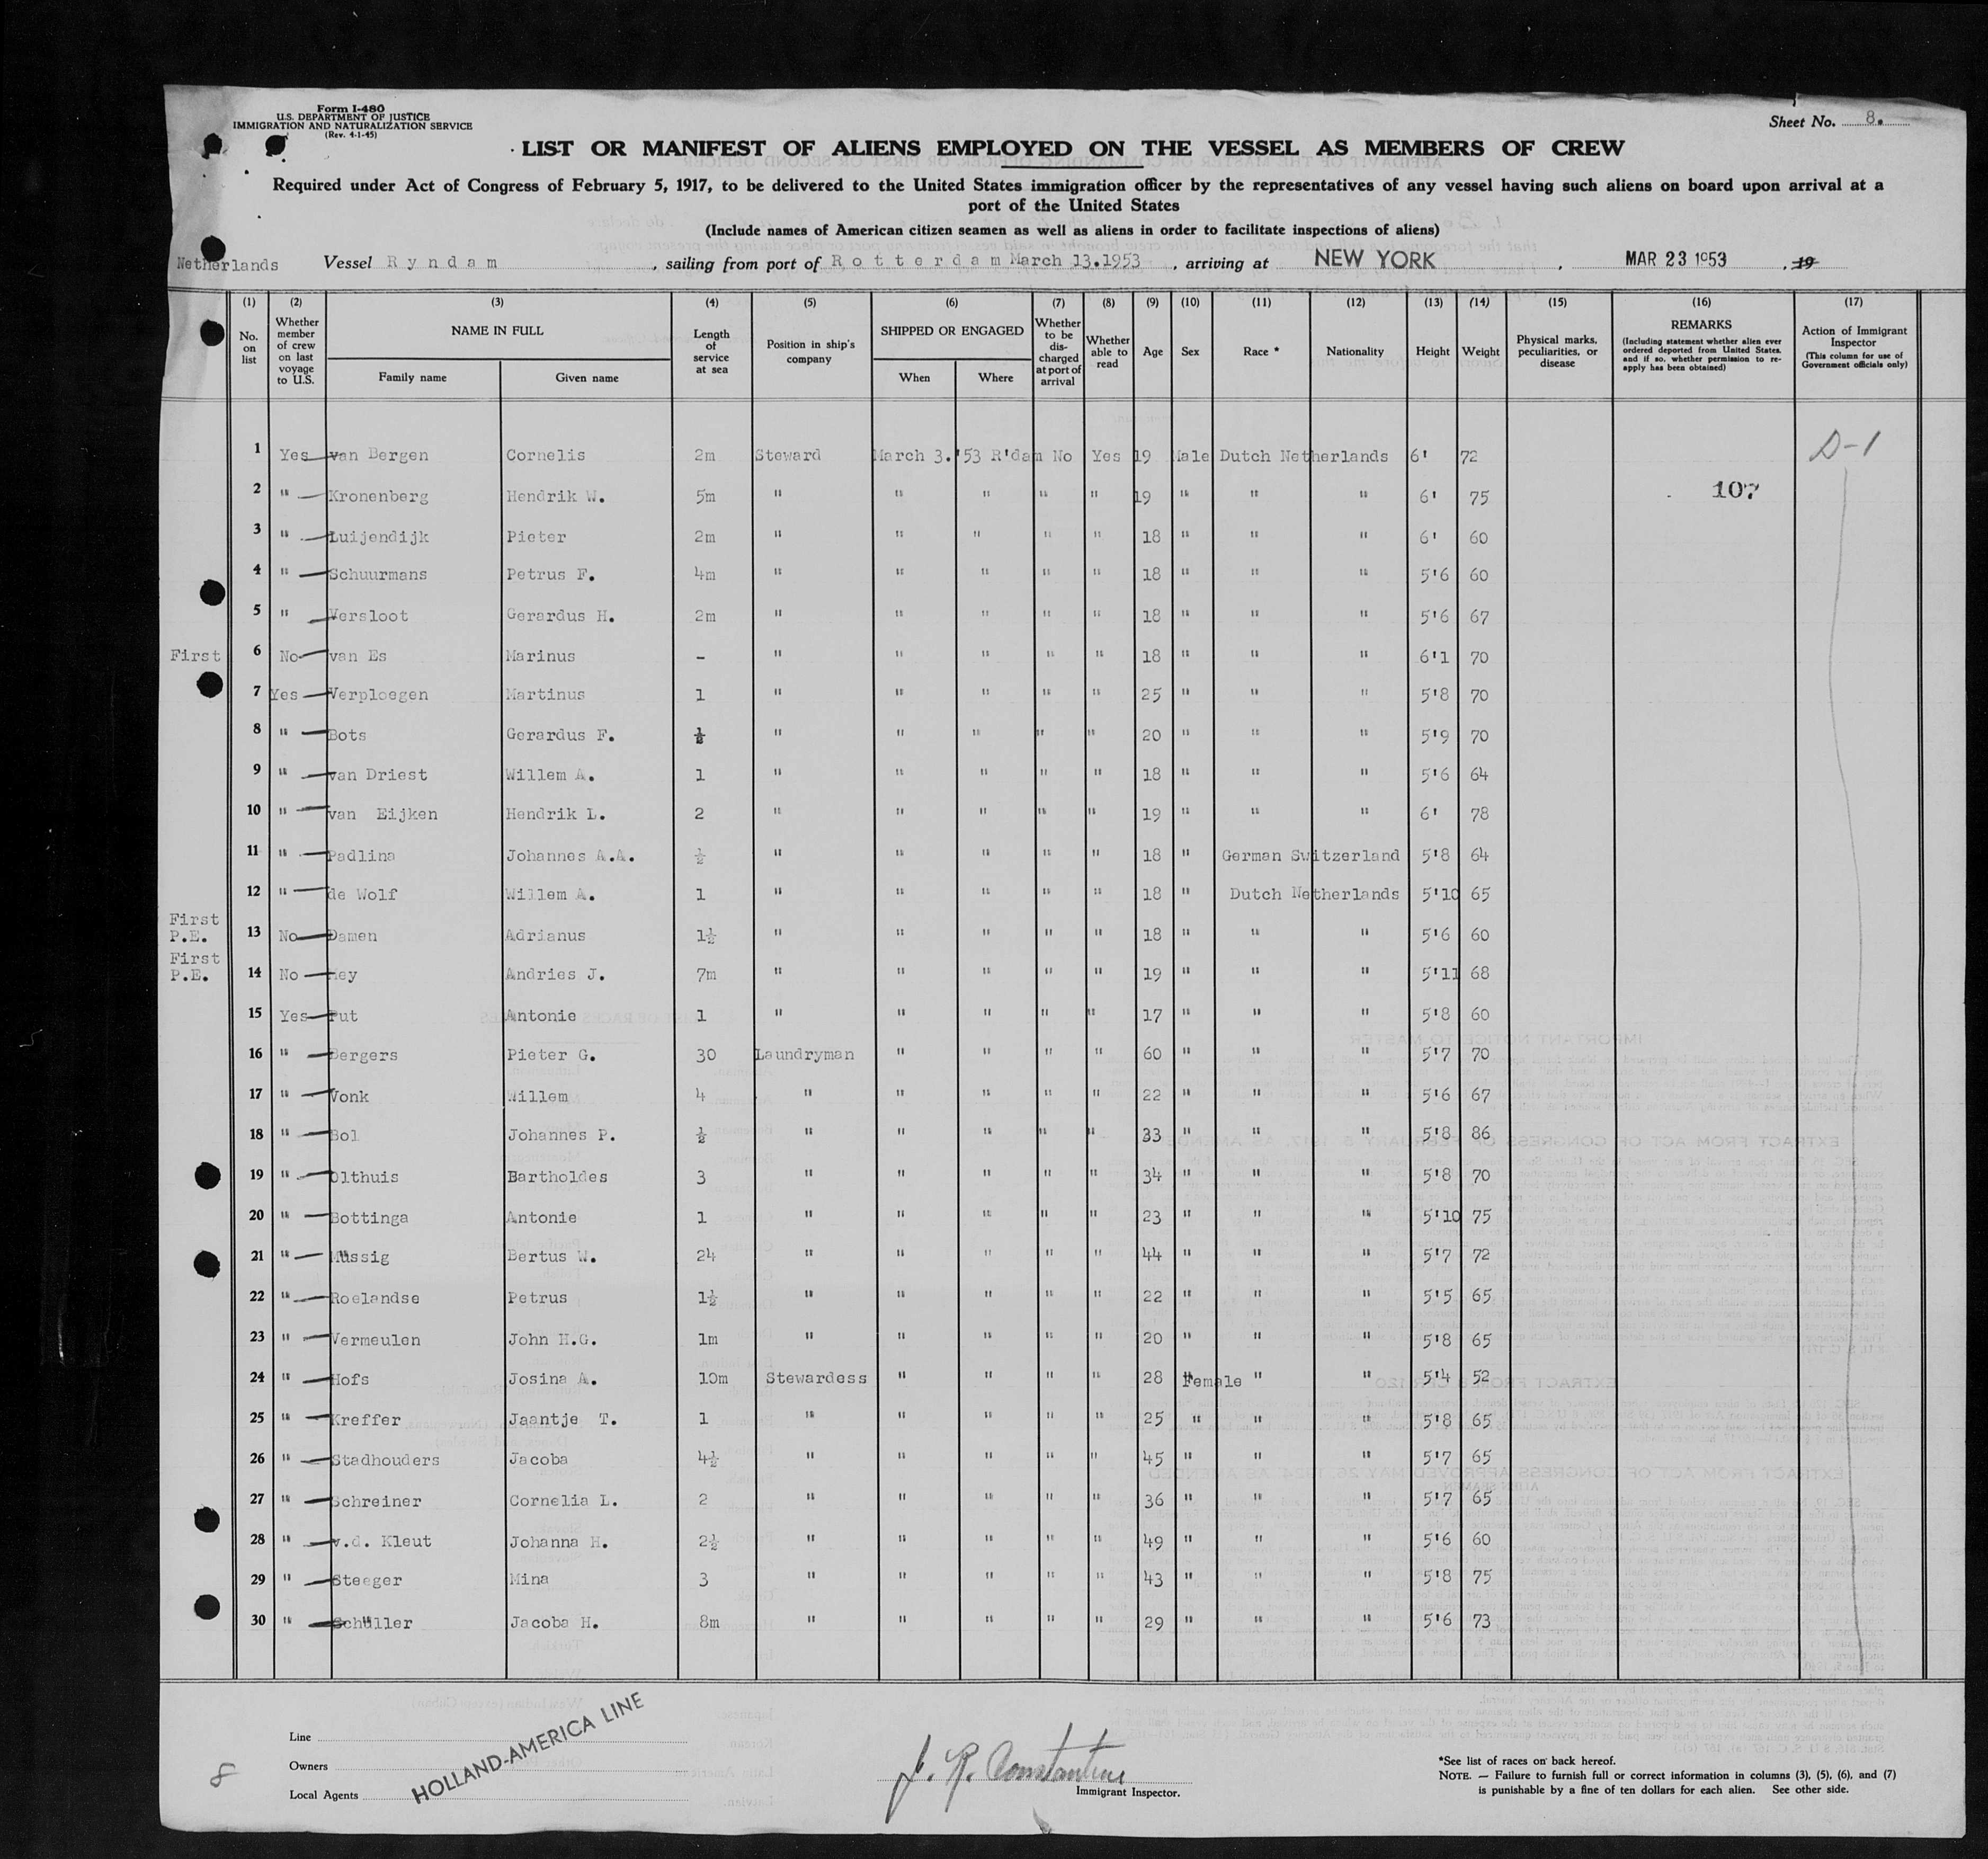 Form I-480
U.S. DEPARTMENT OF JUSTICE
IMMIGRATION AND NATURALIZATION SERVICE
(Rev. 4-1-45)
Sheet No. 8.
LIST OR MANIFEST OF ALIENS EMPLOYED ON THE VESSEL AS MEMBERS OF CREW
Required under Act of Congress of February 5, 1917, to be delivered to the United States immigration officer by the representatives of any vessel having such aliens on board upon arrival at a
port of the United States
(Include names of American citizen seamen as well as aliens in order to facilitate inspections of aliens)
Netherlands Vessel Ryndam, sailing from port of Rotterdam March 13.1953, arriving at NEW YORK, MAR 23 1953, 19
(1) (2) (3) (4) (5) (6) (7) (8) (9) (10) (11) (12) (13) (14) (15) (16) (17)
No. on list
Whether member of crew on last voyage to U.S.
NAME IN FULL
Family name Given name
Length of service at sea
Position in ship's company
SHIPPED OR ENGAGED
When Where
Whether to be discharged at port of arrival
Whether able to read
Age
Sex
Race *
Nationality
Height
Weight
Physical marks, peculiarities, or disease
REMARKS
(Including statement whether alien ever ordered deported from United States, and if so, whether permission to reapply has been obtained)
Action of Immigrant Inspector
(This column for use of Government officials only)
1 Yes van Bergen Cornelis 2m Steward March 3.'53 R'dam No Yes 19 Male Dutch Netherlands 6' 72 D-1
2 " Kronenberg Hendrik W. 5m " " " " " 19 " " " 6' 75 107
3 " Luijendijk Pieter 2m " " " " " 18 " " " 6' 60
4 " Schuurmans Petrus F. 4m " " " " " 18 " " " 5'6 60
5 " Versloot Gerardus H. 2m " " " " " 18 " " " 5'6 67
First 6 No van Es Marinus - " " " " " 18 " " " 6'1 70
7 Yes Verploegen Martinus 1 " " " " " 25 " " " 5'8 70
8 " Bots Gerardus F. ½ " " " " " 20 " " " 5'9 70
9 " van Driest Willem A. 1 " " " " " 18 " " " 5'6 64
10 " van Eijken Hendrik L. 2 " " " " " 19 " " " 6' 78
11 " Padlina Johannes A.A. ½ " " " " " 18 " German Switzerland 5'8 64
12 " de Wolf Willem A. 1 " " " " " 18 " Dutch Netherlands 5'10 65
First P.E. 13 No Damen Adrianus 1½ " " " " " 18 " " " 5'6 60
First P.E. 14 No Andries J. 7m " " " " " 19 " " " 5'11 68
15 Yes Put Antonie 1 " " " " " 17 " " " 5'8 60
16 " Bergers Pieter G. 30 Laundryman " " " " 60 " " " 5'7 70
17 " Vonk Willem 4 " " " " " 22 " " " 5'6 67
18 " Bol Johannes P. ½ " " " " " 33 " " " 5'8 86
19 " Olthuis Bartholdes 3 " " " " " 34 " " " 5'8 70
20 " Bottinga Antonie 1 " " " " " 23 " " " 5'10 75
21 " Müssig Bertus W. 24 " " " " " 44 " " " 5'7 72
22 " Roelandse Petrus 1½ " " " " " 22 " " " 5'5 65
23 " Vermeulen John H.G. 1m " " " " " 20 " " " 5'8 65
24 " Hofs Josina A. 10m Stewardess " " " " 28 Female " " 5'4 52
25 " Kreffer Jaantje T. 1 " " " " " 25 " " " 5'8 65
26 " Stadhouders Jacoba 4½ " " " " " 45 " " " 5'7 65
27 " Schreiner Cornelia L. 2 " " " " " 36 " " " 5'7 65
28 " v.d. Kleut Johanna H. 2½ " " " " " 49 " " " 5'6 60
29 " Steeger Mina 3 " " " " " 43 " " " 5'8 75
30 " Schüller Jacoba H. 8m " " " " " 29 " " " 5'6 73
Line
Owners
Local Agents
HOLLAND-AMERICA LINE
8
J. R. Constantine
Immigrant Inspector.
*See list of races on back hereof.
NOTE. — Failure to furnish full or correct information in columns (3), (5), (6), and (7)
is punishable by a fine of ten dollars for each alien. See other side.